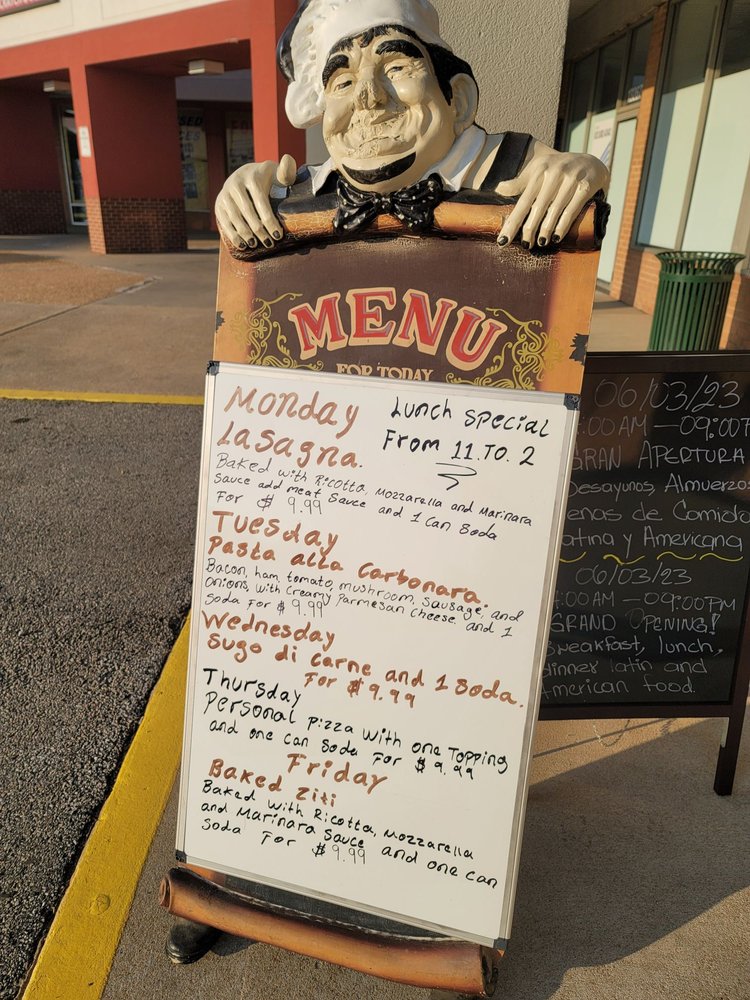 MENU
FOR TODAY
Monday
Lasagna.
Lunch Special
From 11 TO. 2
Baked with Ricotta, Mozzarella and Marinara
Sauce add meat Sauce and 1 Can Soda
For $ 9.99
Tuesday
Pasta alla Carbonara.
Bacon, ham, tomato, mushroom, sausage, and
Onions, with Creamy Parmesan Cheese. and 1
Soda For $ 9.99
Wednesday
Sugo di Carne and 1 Soda.
For $ 9.99
Thursday
Personal Pizza with one Topping
and one Can Soda For $ 9.99
Friday
Baked Ziti
Baked with Ricotta, Mozzarella
and Marinara Sauce and one can
Soda For $9.99
06/03/23
:00AM—09:00P
GRAN APERTURA
Desayunos, Almuerzos
enas de Comida
atina y Americana
06/03/23
:00AM—09:00PM
GRAND OPENING!
Breakfast, lunch,
dinner latin and
American food.